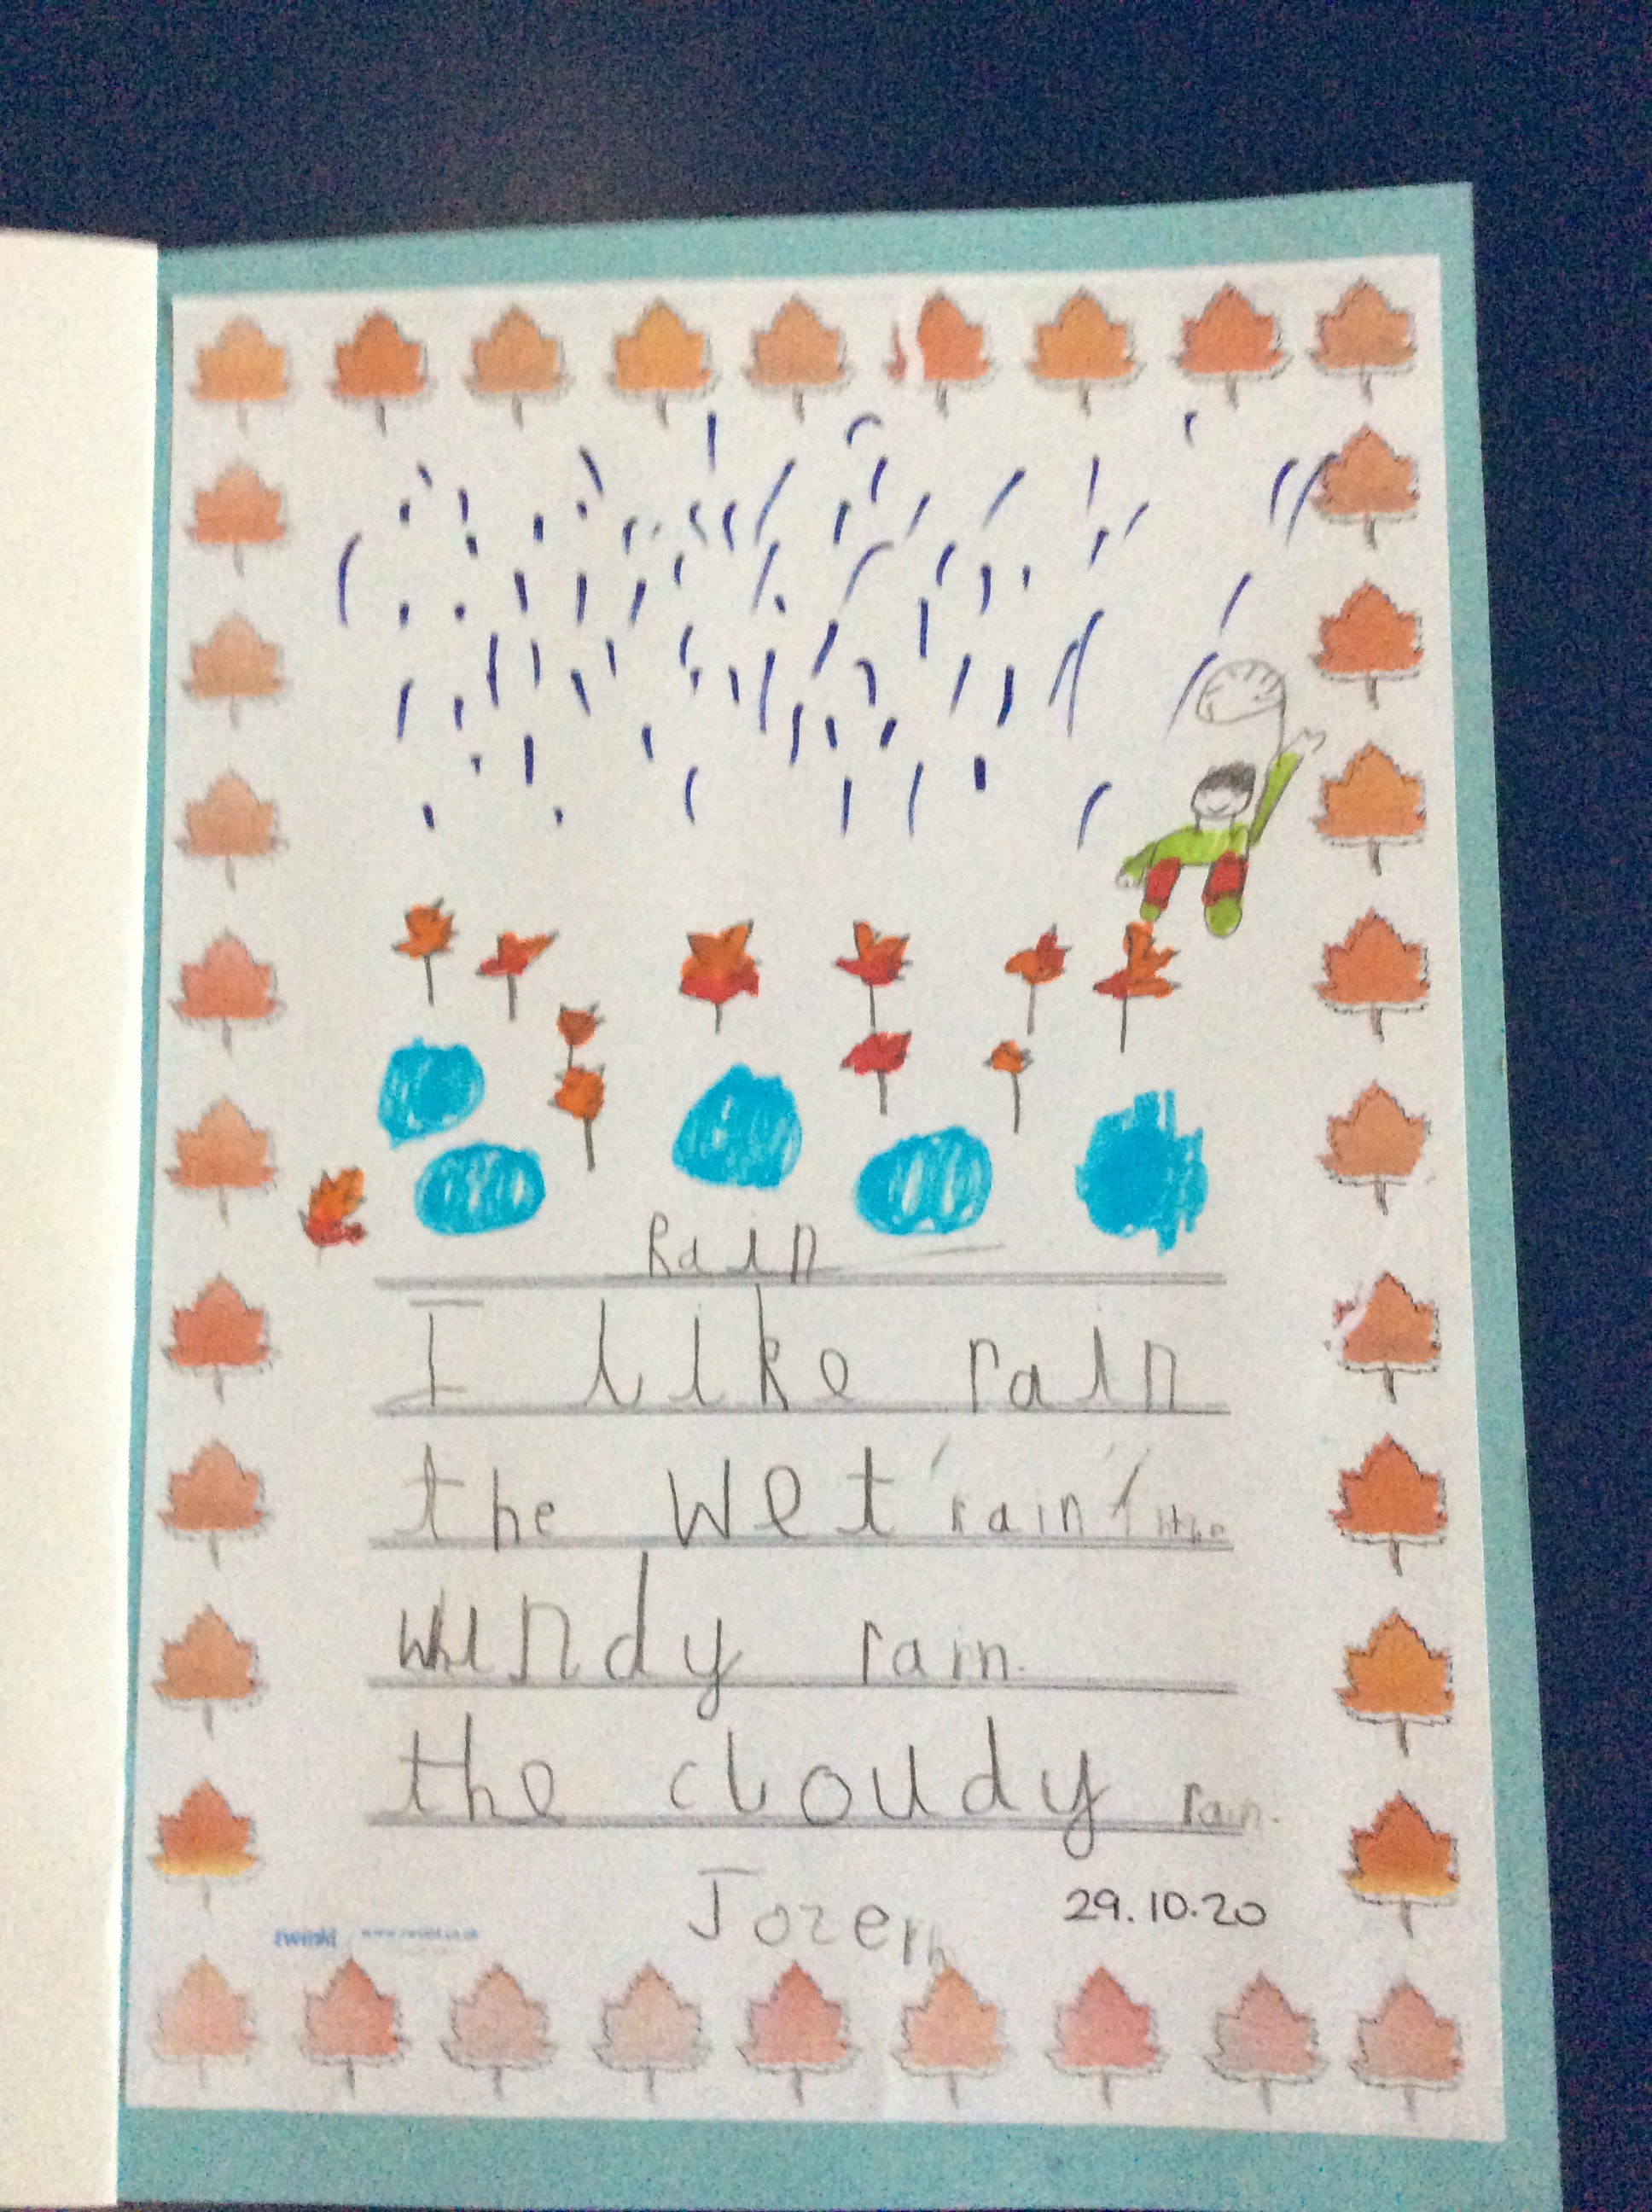 Rain
I like rain
the wet rain the
windy rain.
the cloudy rain.
Jozeph
29.10.20
twinkl www.twinkl.co.uk